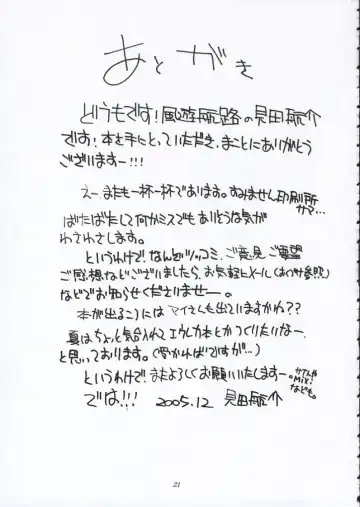 あとがき
どうもです!風遊航路の見田航介
です!本を手にとっていただき、まことにありがとう
ございますー!!!
えー、またも一杯一杯であります。すみません印刷所
サマ…
ばたばたして何かミスでもありそうな気が
わさわさします。
というわけで、なんぞツッコミ、ご意見、ご要望
ご感想などございましたら、お気軽にメール(おくづけ参照)
などでお知らせくださいませー。
本が出るころにはマイさんも出ていますかね??
夏はちょっと気合入れてエウレカ本とかつくりたいなー、
と思っております。(受かればですが…)
というわけで、またよろしくお願いいたしますー。
なども。
では!!! 2005.12 見田航介
21